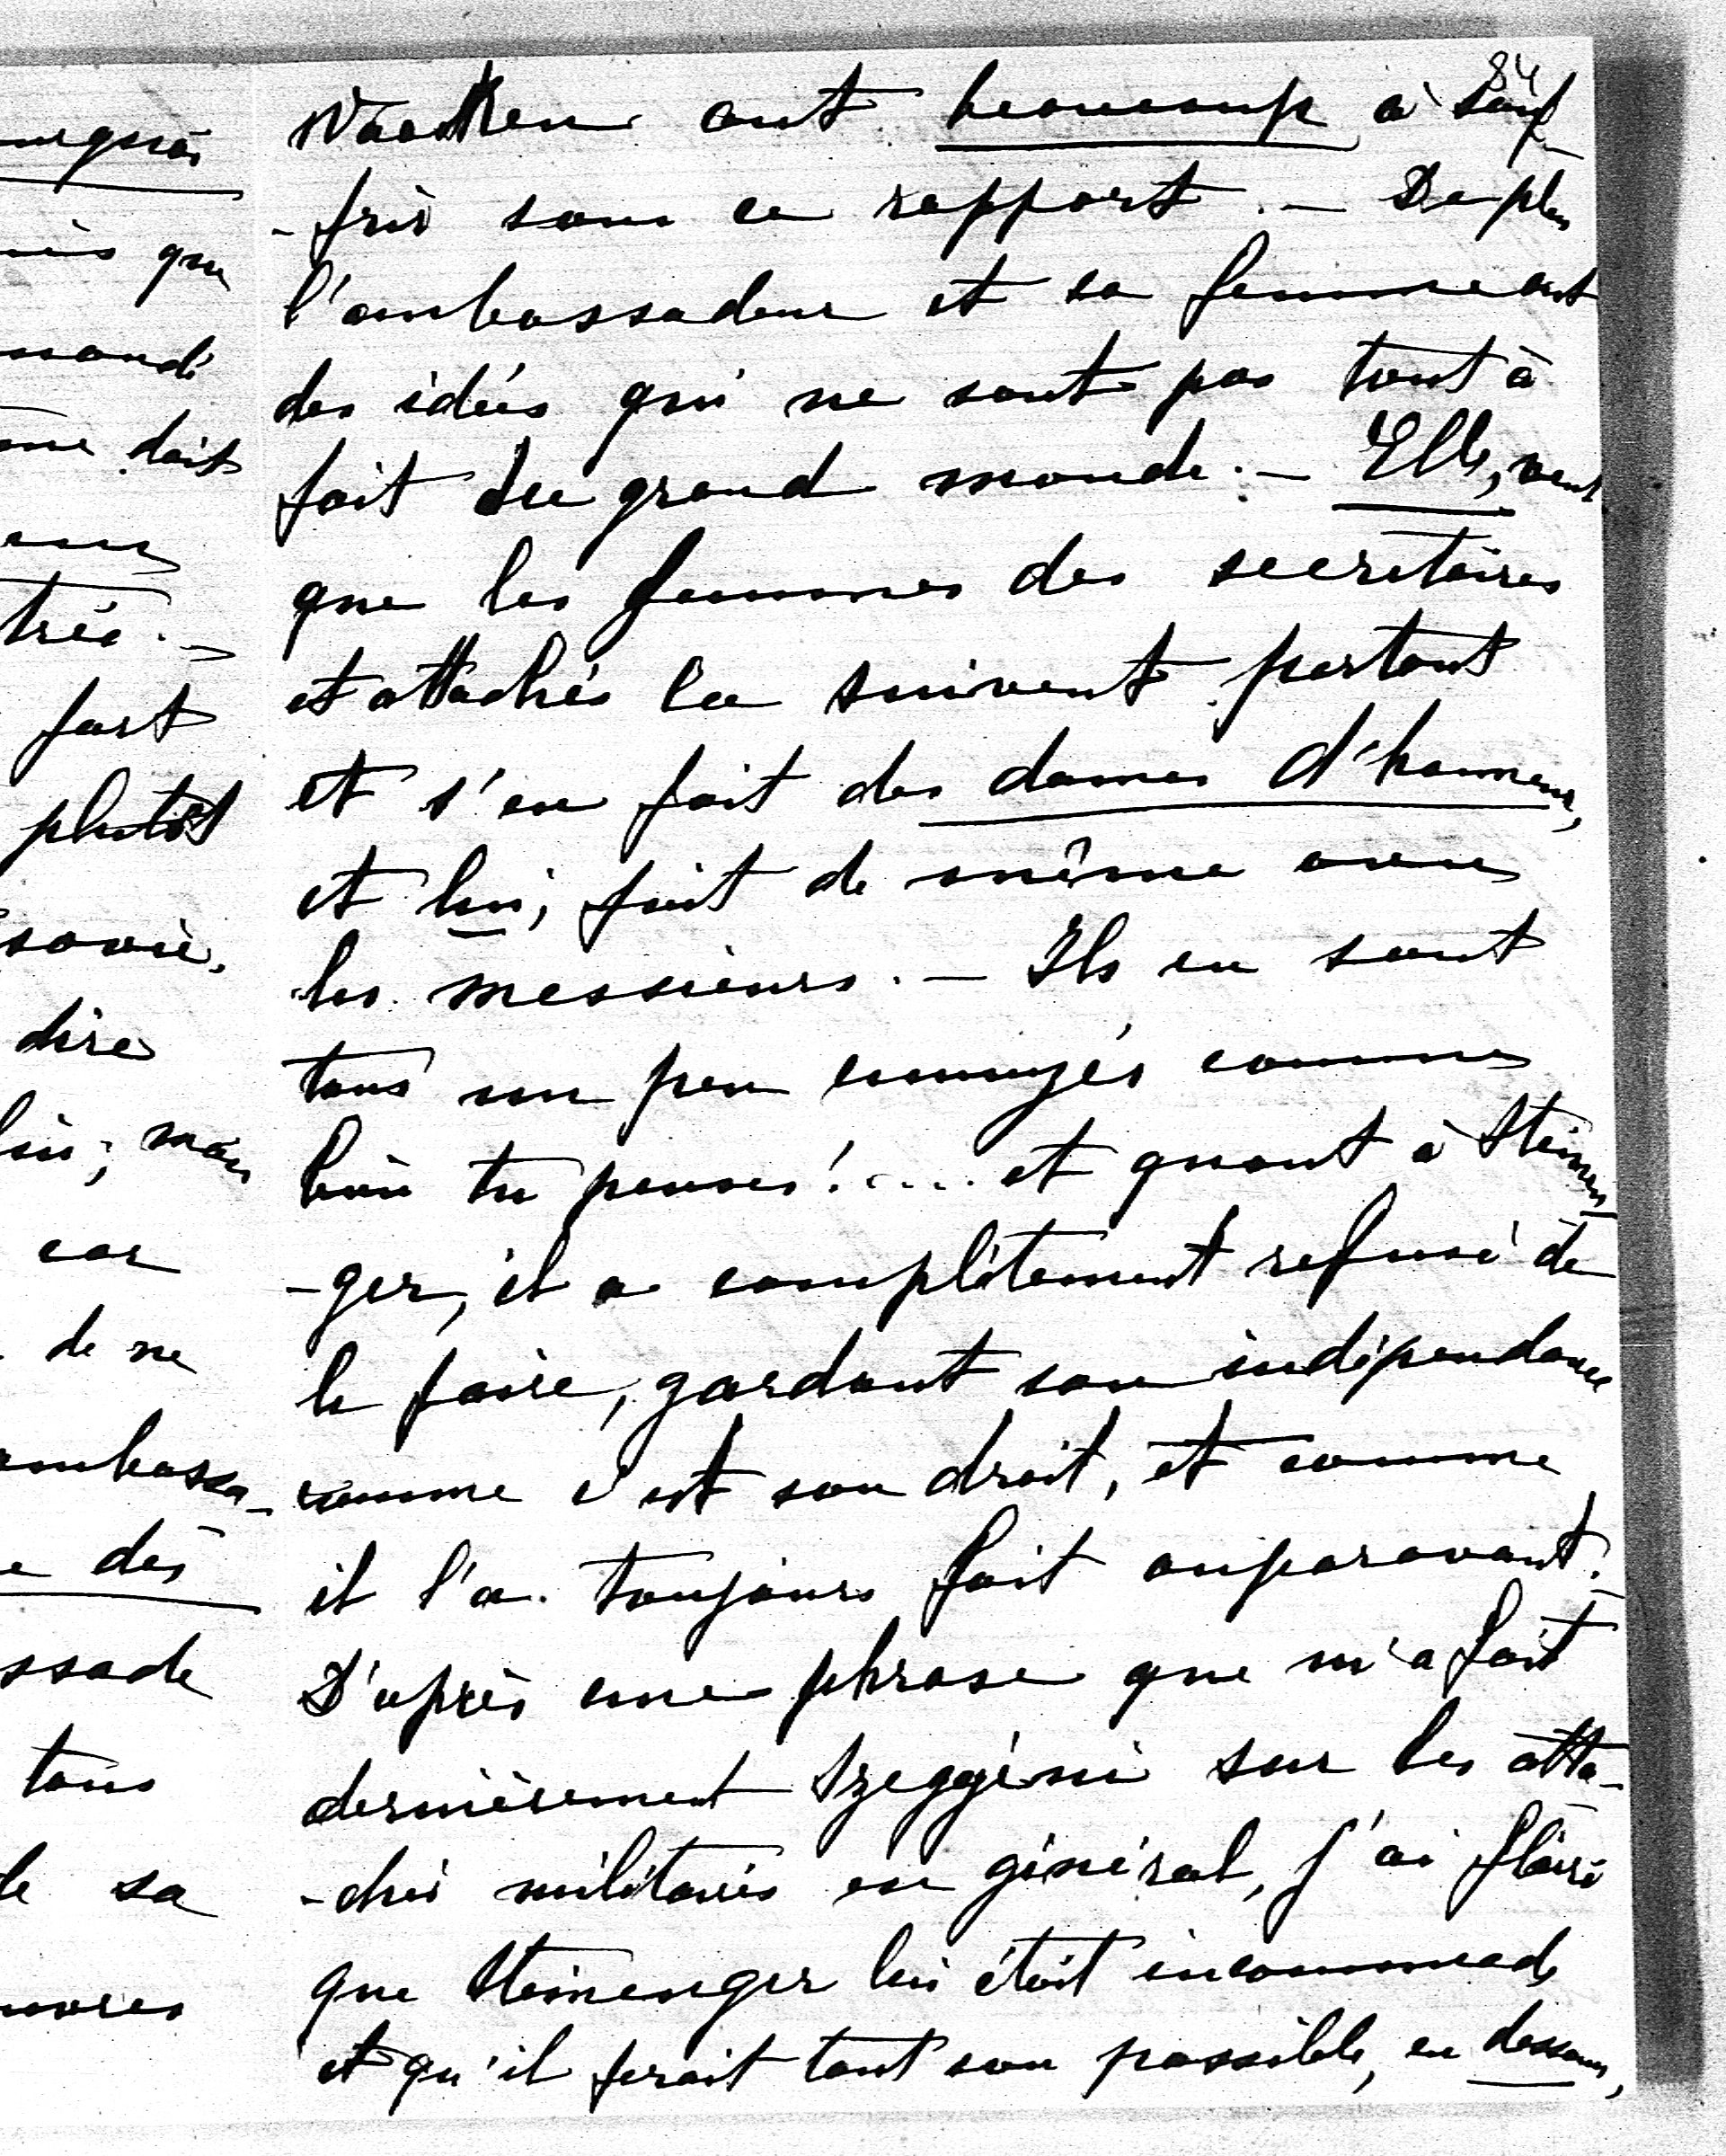 84
ont beaucoup à souf-
-frir sous ce rapport. — De plus
l'ambassadeur et sa femme ont
des idées qui ne sont pas tout à
fait du grand monde. — Elle, veut
que les femmes des secrétaires
et attachés la suivent partout
et s'en fait des dames d'honneur,
et lui, fait de même avec
les messieurs. — Ils en sont
tous un peu ennuyés comme
bien tu penses!.... et quant à Steinen-
-ger, il a complètement refusé de
le faire, gardant son indépendance
comme c'est son droit, et comme
il l'a toujours fait auparavant.
D'après une phrase que m'a fait
dernièrement Szeggéni sur les atta-
-chés militaires en général, j'ai flairé
que Steinenger lui était incommode
et qu'il ferait tout son possible, en dessous,
que
mande
doit
fort
plutôt
dire
mais
car
de ne
ambassa-
dès
ssade
tous
de sa